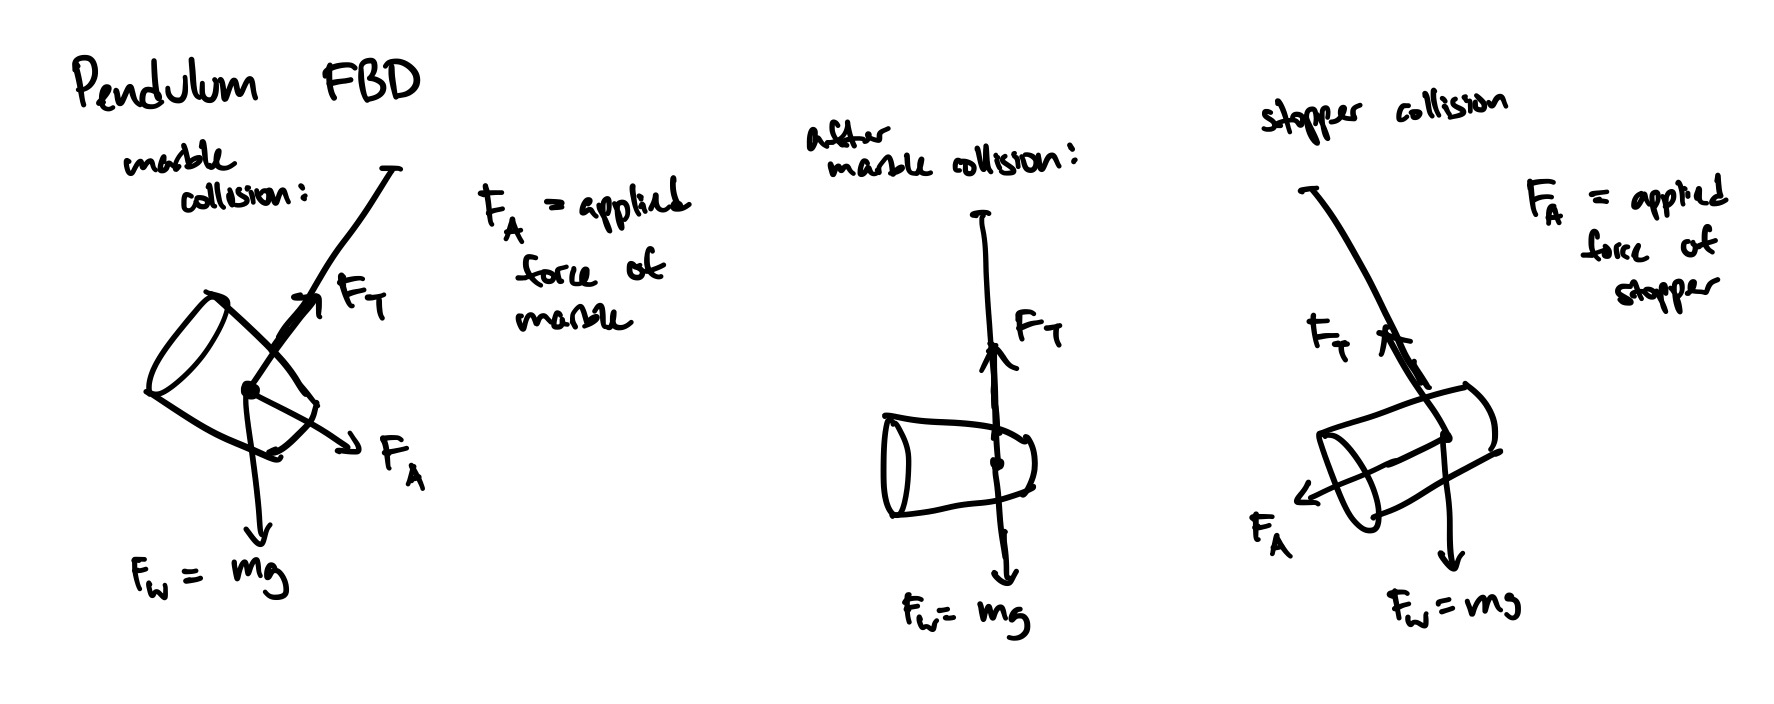 Pendulum FBD
marble
collision:
F_T
F_A = applied
force of
marble
F_A
F_W = mg
after
marble collision:
F_T
F_W = mg
stopper collision
F_A = applied
force of
stopper
F_T
F_A
F_W = mg